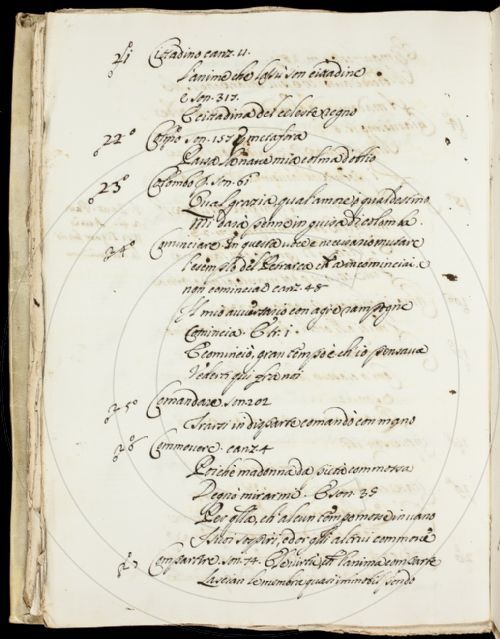 21 Cittadino canz. 11.
L'anime che lassù son cittadine
E son. 317.
Cittadina del celeste regno
22° son. 157 metafora
Passa la nave mia colma d'oblio
23° Colombo son. 61
Qual grazia, qual amore, o qual destino
Mi darà penne in guisa di colomba.
24° Cominciare In questa voce è necessario mutare
l'esempio del Petrarca ch'è incominciai, e
non cominciai canz. 48
Il mio avversario con agre rampogne
Comincia. Tr. 1.
E cominciò, gran tempo è ch'io pensava
Vederti qui fra noi
25° Comandare. son. 202
Trarsi in disparte comandò con mano
26 Commovere. canz. 4
Poiché madonna da pietà commossa
Degnò mirarme. E son. 35
Per ch'alcun tempo mosse in vano
I suoi sospiri, ed or gli altrui commove
27 Compartire. son. 74. E le virtù, che l'anima comparte
Lascian le membra, quasi immobil pondo